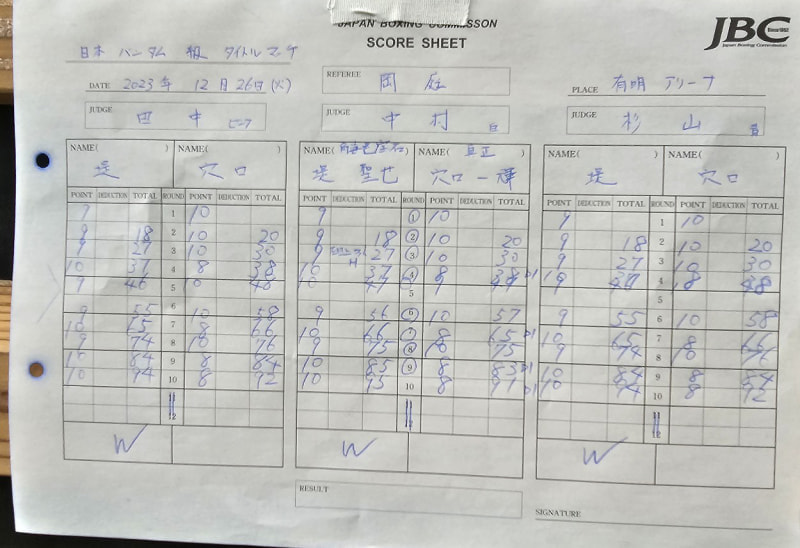 JAPAN BOXING COMMISSON
SCORE SHEET
JBC
Since1952
Japan Boxing Commission
日本 バンタム 級 タイトルマッチ
DATE 2023年 12月26日(火)
REFEREE 岡庭
PLACE 有明アリーナ
JUDGE 田中
JUDGE 中村
JUDGE 杉山
NAME( ) 堤 NAME( ) 穴口
NAME( ) 堤 聖也 NAME(真正) 穴口一輝
NAME( ) 堤 NAME( ) 穴口
POINT DEDUCTION TOTAL ROUND POINT DEDUCTION TOTAL
POINT DEDUCTION TOTAL ROUND POINT DEDUCTION TOTAL
POINT DEDUCTION TOTAL ROUND POINT DEDUCTION TOTAL
9 1 10 9 1 10 9 1 10
9 18 2 10 20 9 18 2 10 20 9 18 2 10 20
9 27 3 10 30 9 27 3 10 30 9 27 3 10 30
10 37 4 8 38 10 37 4 8 38 10 37 4 8 38
9 46 5 10 48 5 5
9 55 6 10 58 9 56 6 10 57 9 55 6 10 58
10 65 7 8 66 10 66 7 8 65 10 65 7 8 66
9 74 8 10 76 9 75 8 10 75 9 74 8 10 76
10 84 9 8 84 10 85 9 8 83 10 84 9 8 84
10 94 10 8 92 10 95 10 8 91 10 94 10 8 92
W W W
RESULT
SIGNATURE